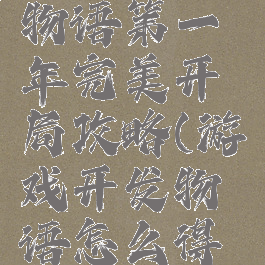 物语第一
年完美开
局攻略(游
戏开发物
语怎么得